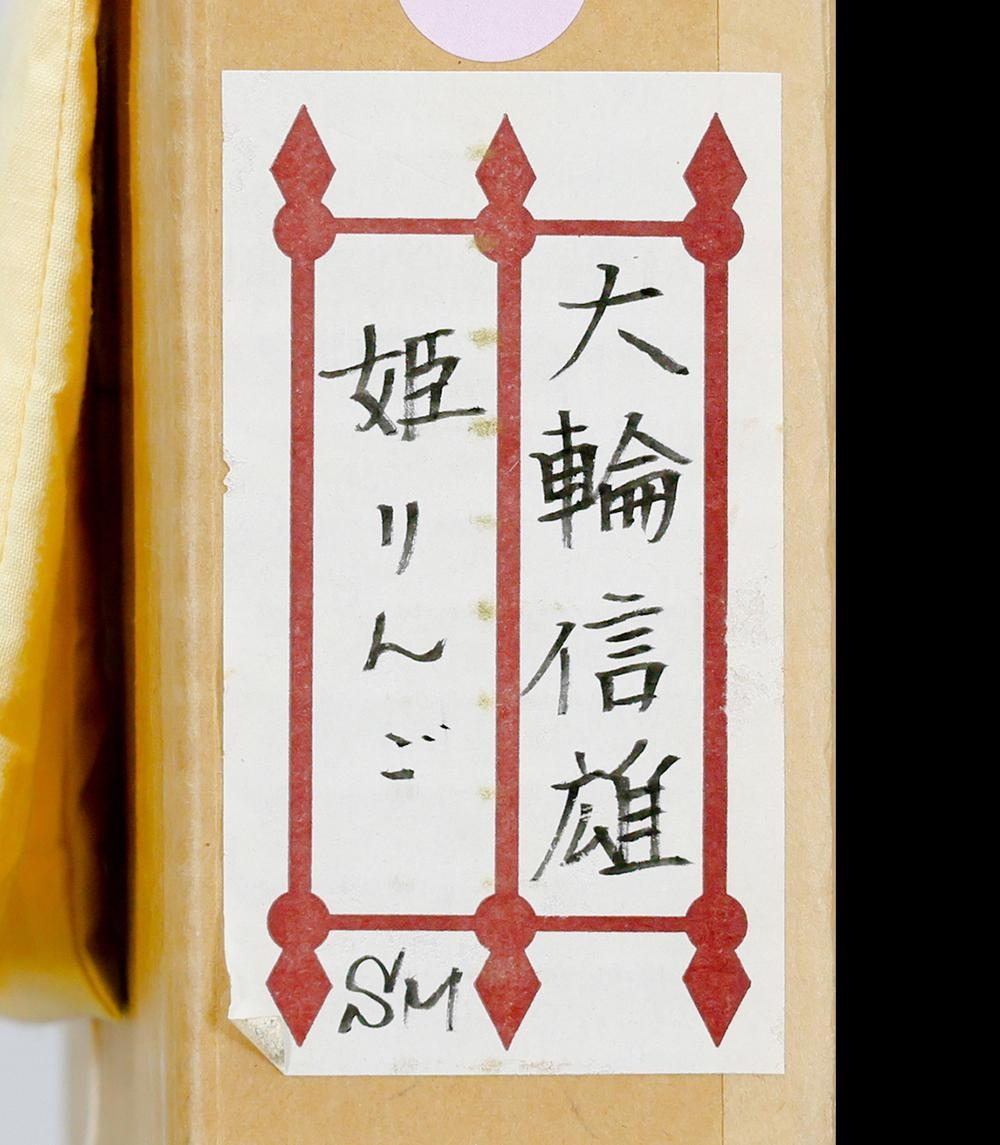 大輪信雄
姫りんご
SM